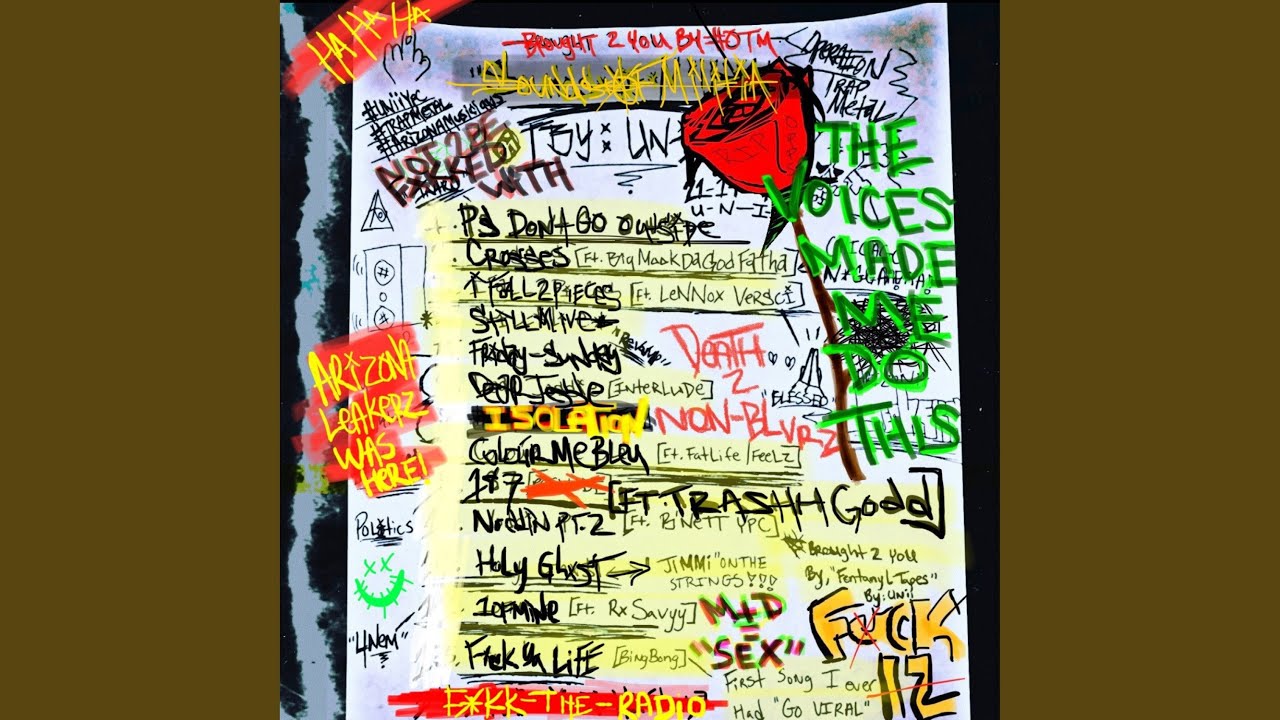 HAHAHA
BROUGHT 2 YOU BY HOTM
"Sounds of Militia"
OPERATION
TRAP
METAL
#UNiiyrc
#TRAPMETAL
#ARIZONAMUSICIANS
NOT 2 BE
F*KKED
WITH
INTRO
BY: UN
RIP
U-N-I-
THE
VOICES
MADE
ME
DO
THIS
PS DON'T GO OUTSIDE
CROSSES [Ft. Big Maak Da God Fatha]
I FALL 2 PIECES [Ft. LeNNox VERSCi]
STILL ALIVE
FRIDAY-SUNDAY "REVAMP"
DEAR JESSIE [INTERLUDE]
ISOLATION
COLOUR ME BLEU [Ft. FatLife/FeeLz]
187 [FT. TRASHH Godd]
NODDIN PT. 2 [Ft. BiNETT YPC]
HOLY GHXST JIMMI "ON THE
STRINGS!!!
1 OF MINE [Ft. Rx Savyy]
F*ck Ya LiFE [BingBong]
DEATH
2
NON-BLVRZ
"BLESSED"
ARiZONA
LEAKERZ
WAS
HERE!
POL*tics
"4NEM"
BROUGHT 2 YOU
By, "Fentanyl Tapes"
By: UNii
M+D
=
"SEX"
FUCK
12
First Song I ever
Had "Go VIRAL"
F*KK-THE-RADIO